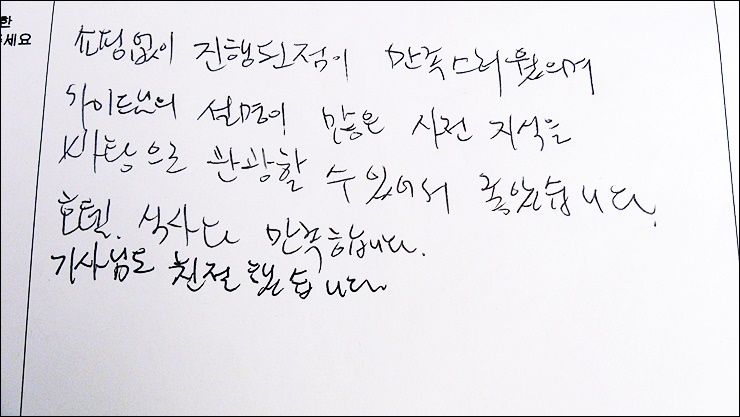 한
세요
쇼핑없이 진행되 점이 만족스러웠으며
가이드님의 설명이 많은 사전 지식을
바탕으로 관광할 수 있어서 좋았습니다.
호텔. 식사 다 만족합니다.
기사님도 친절했습니다